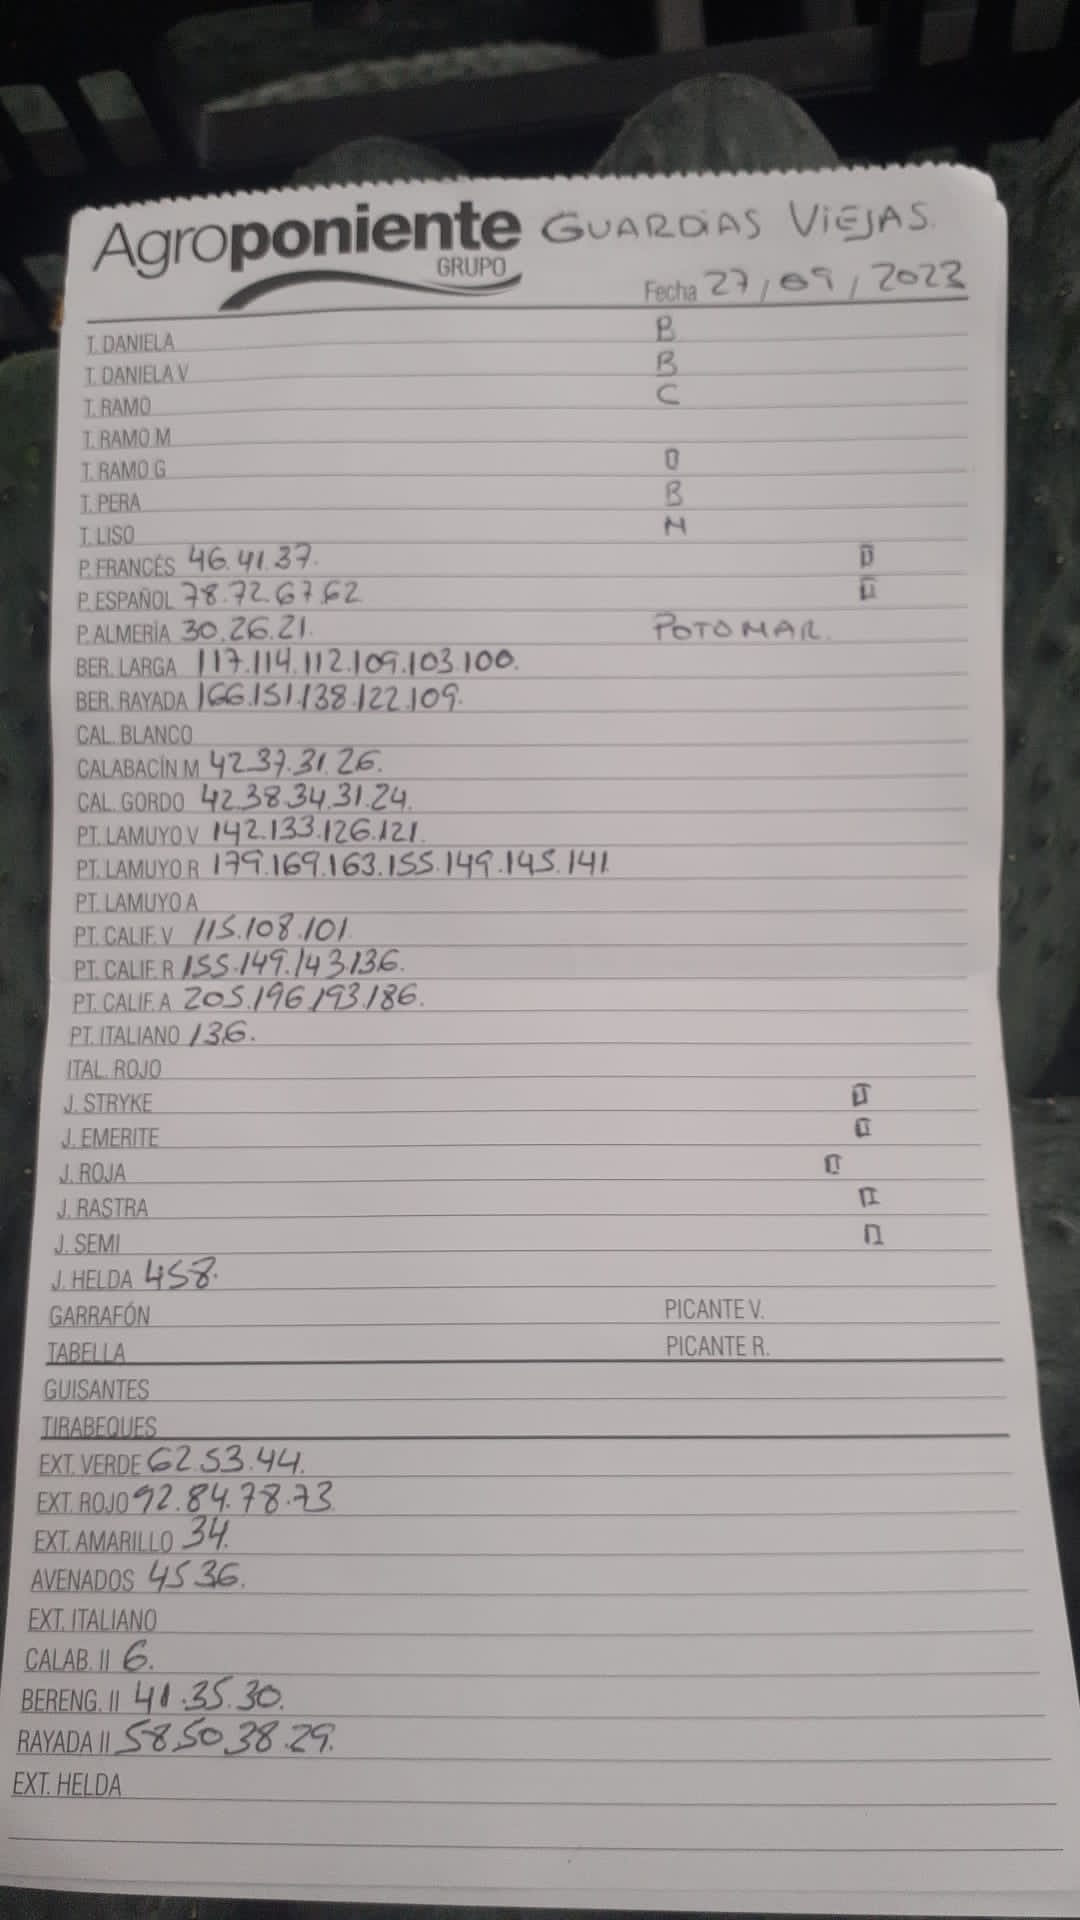 Agroponiente GUARDIAS VIEJAS.
GRUPO
Fecha 27/09/2023
T. DANIELA B
T. DANIELA V B
T. RAMO C
T. RAMO M
T. RAMO G
T. PERA B
T. LISO M
P. FRANCÉS 46.41.37.
P. ESPAÑOL 78.72.67.62
P. ALMERÍA 30.26.21. POTOMAR.
BER. LARGA 117.114.112.109.103.100.
BER. RAYADA 166.151.138.122.109.
CAL. BLANCO
CALABACÍN M 42.37.31.26.
CAL. GORDO 42.38.34.31.24.
PT. LAMUYO V 142.133.126.121.
PT. LAMUYO R 179.169.163.155.149.145.141
PT. LAMUYO A
PT. CALIF. V 115.108.101.
PT. CALIF. R 155.149.143.136.
PT. CALIF. A 205.196.193.186.
PT. ITALIANO 136.
ITAL. ROJO
J. STRYKE
J. EMERITE
J. ROJA
J. RASTRA
J. SEMI
J. HELDA 458.
GARRAFÓN PICANTE V.
TABELLA PICANTE R.
GUISANTES
TIRABEQUES
EXT. VERDE 62.53.44.
EXT. ROJO 92.84.78.73
EXT. AMARILLO 34.
AVENADOS 45 36.
EXT. ITALIANO
CALAB. II 6.
BERENG. II 41.35.30.
RAYADA II 58.50.38.29.
EXT. HELDA